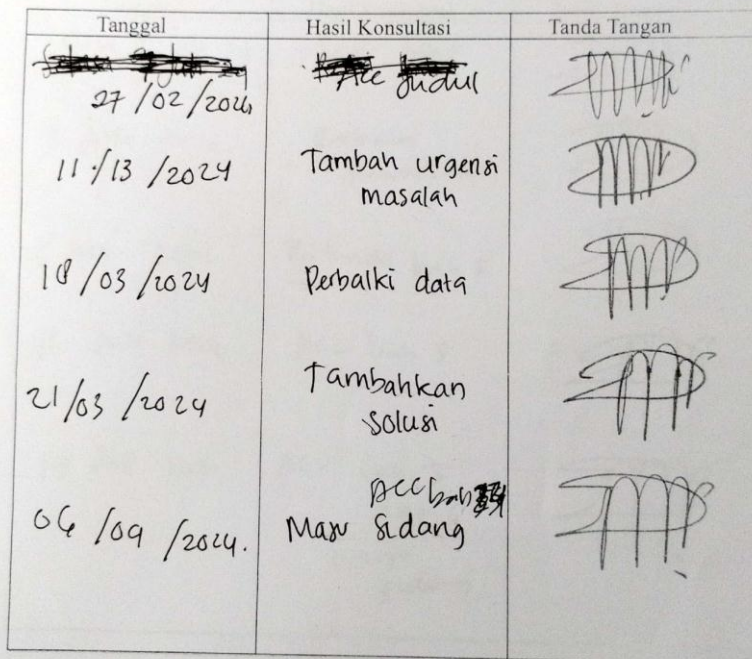 Tanggal Hasil Konsultasi Tanda Tangan
27/02/2024 Acc Judul
11/13/2024 Tambah urgensi
masalah
18/03/2024 Perbaiki data
21/03/2024 Tambahkan
solusi
ACC bab
06/09/2024. Maju Sidang